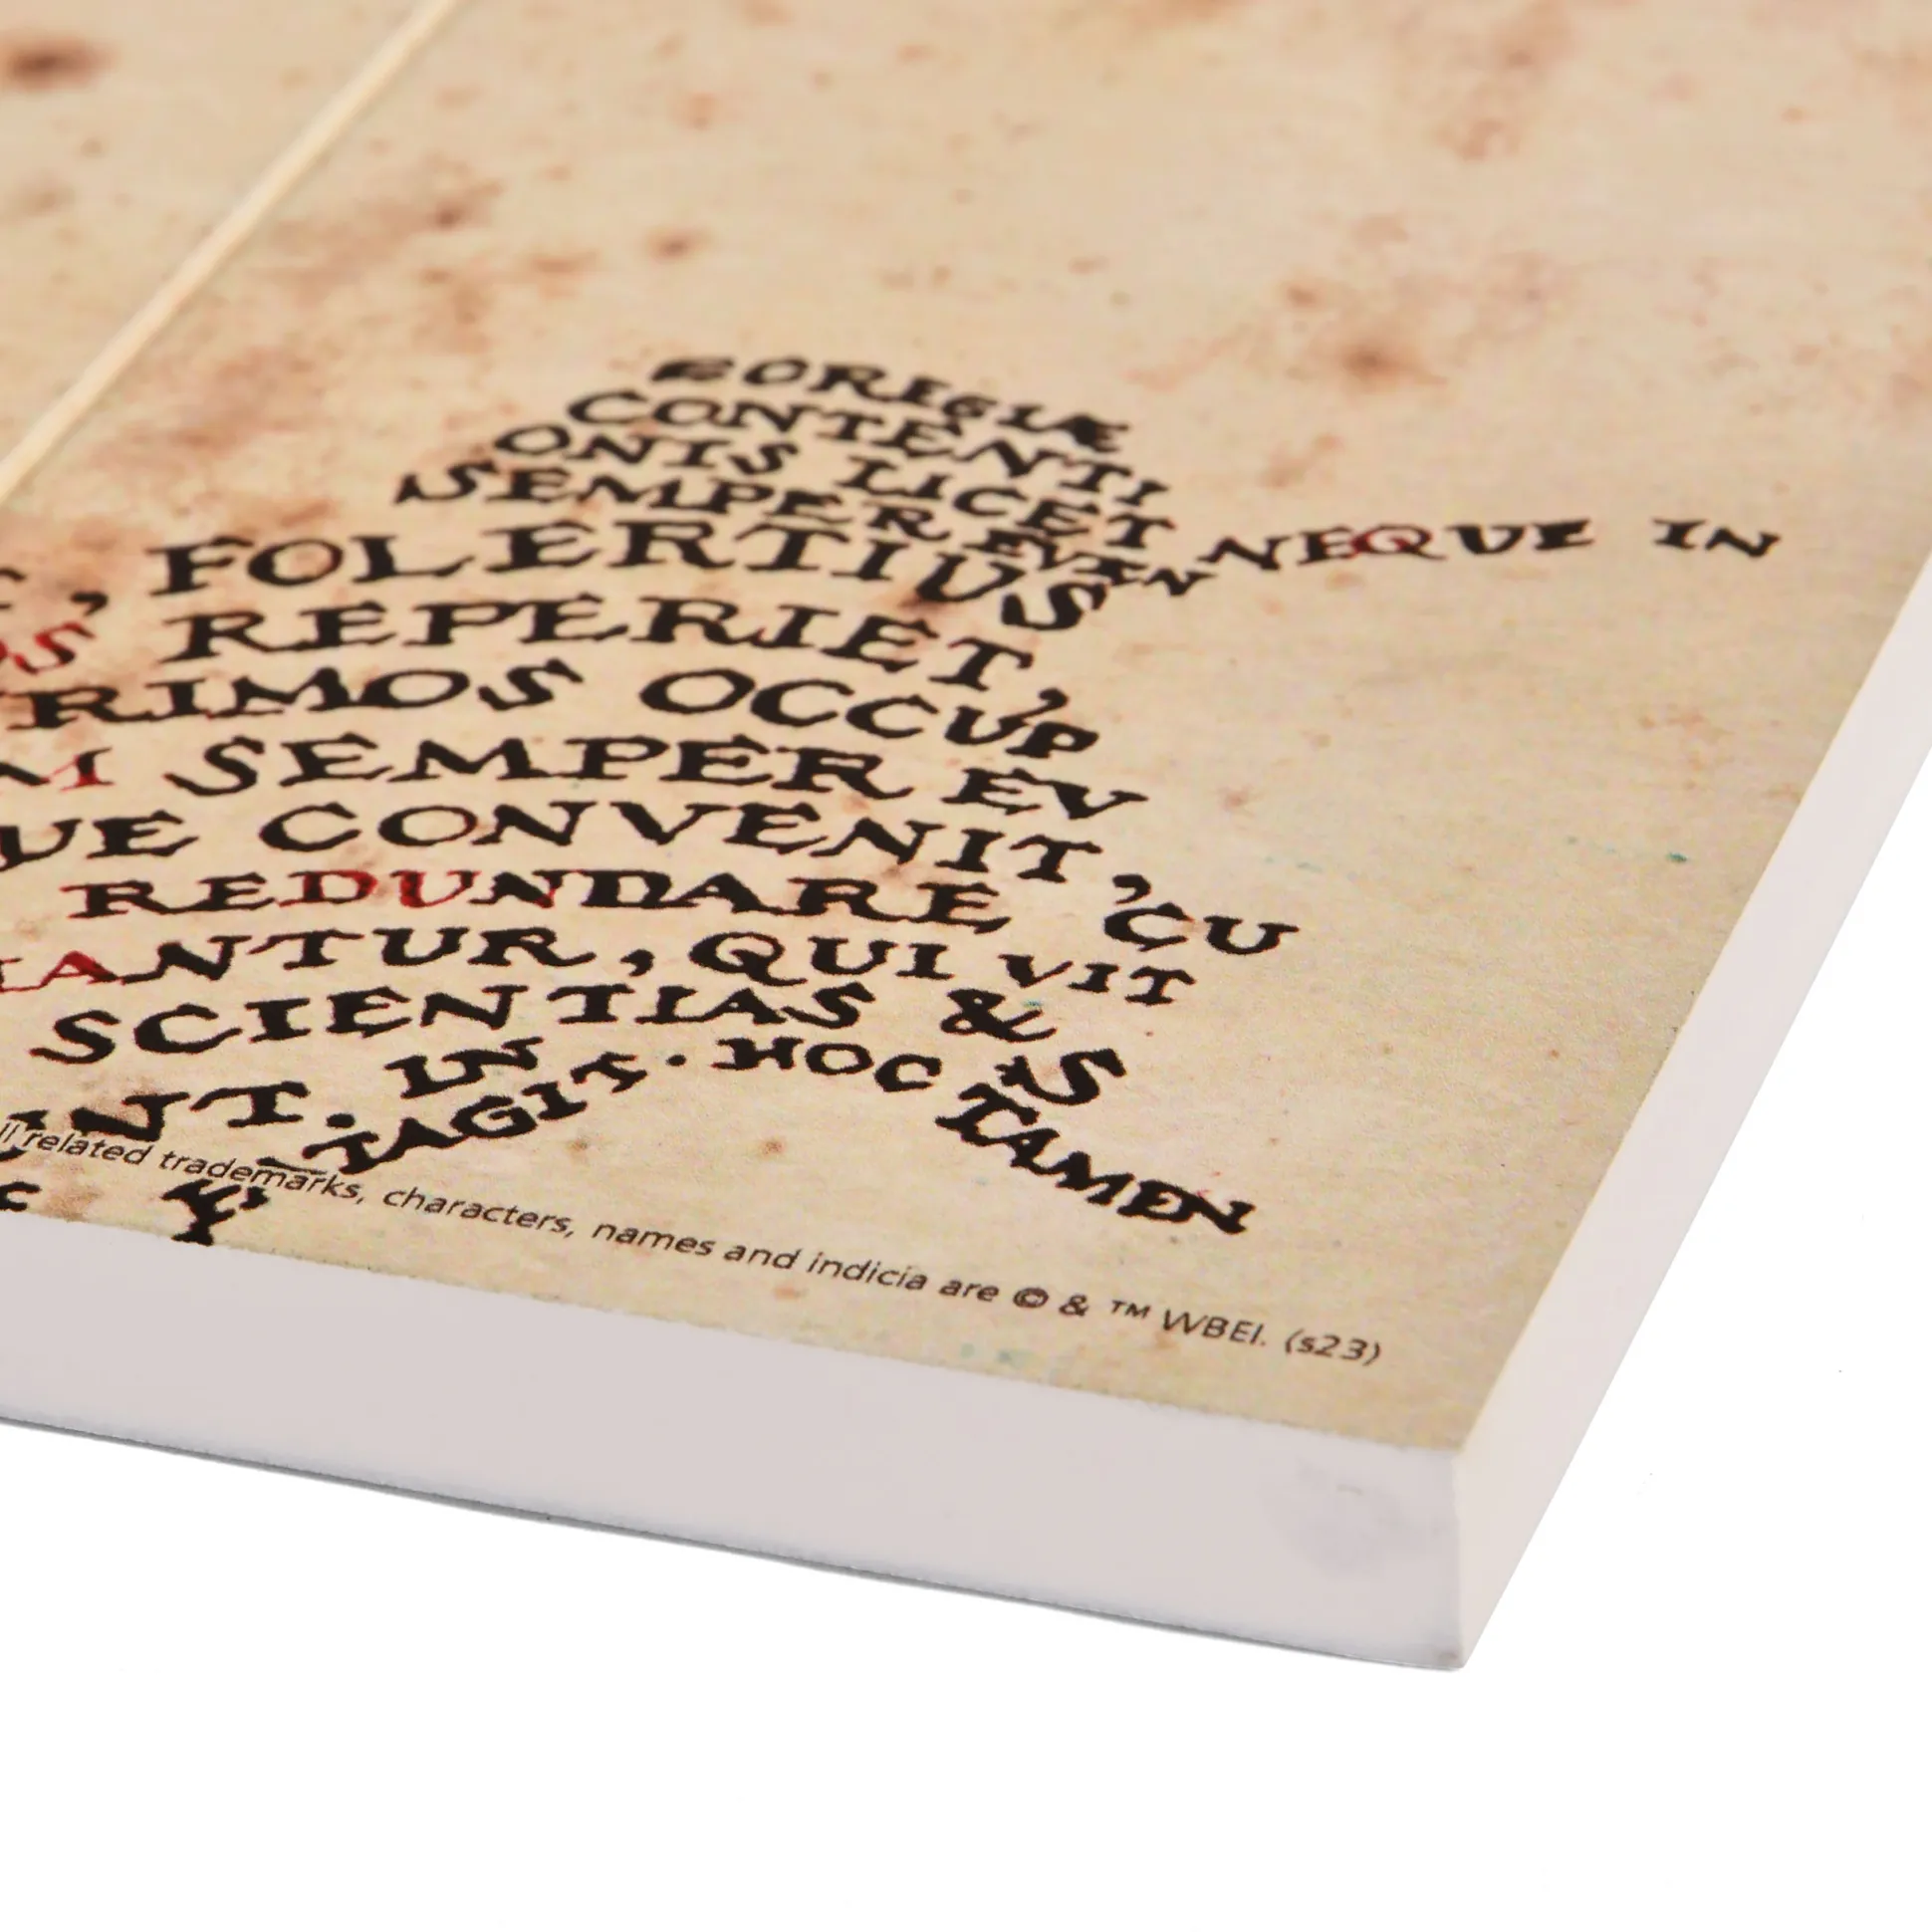 EOREGIÆ
CONTENTI
ONIS LICET
SEMPER EVAN NEQUE IN
, FOLERTIUS
OS REPERIET,
RIMOS OCCUP
AI SEMPER EV
VE CONVENIT, CU
REDUNDARE
ANTUR, QUI VIT
SCIENTIAS & S
INT. IN
TAGIT. HOC TAMEN
related trademarks, characters, names and indicia are © & ™ WBEI. (s23)